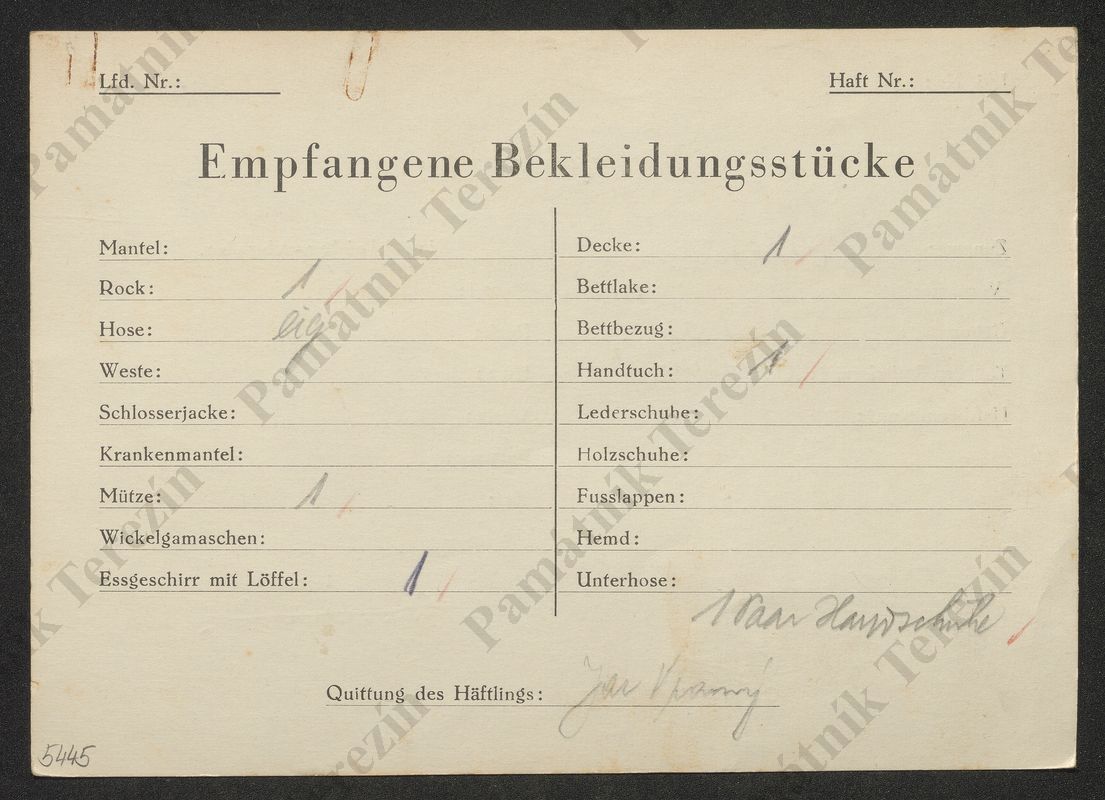 Lfd. Nr.:
Haft Nr.:
Empfangene Bekleidungsstücke
Mantel:
Rock: 1
Hose: eig
Weste:
Schlosserjacke:
Krankenmantel:
Mütze: 1
Wickelgamaschen:
Essgeschirr mit Löffel: 1
Decke: 1
Bettlake:
Bettbezug:
Handtuch: 1
Lederschuhe:
Holzschuhe:
Fusslappen:
Hemd:
Unterhose:
1 Paar Handschuhe
Quittung des Häftlings:
5445
Památník Terezín